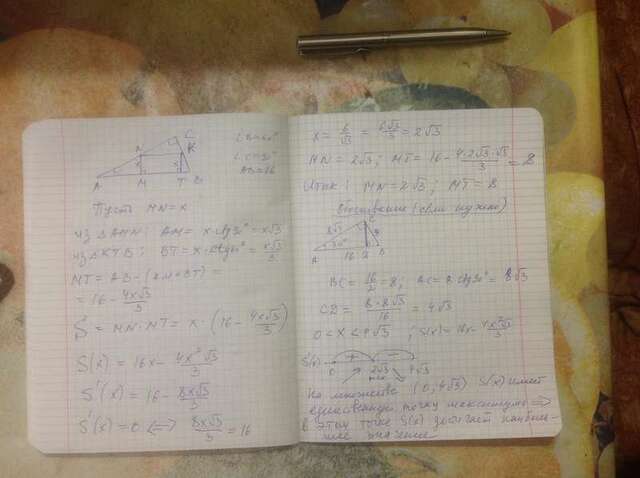 C
K
N
x
x
A
M
T
B
AB=16
Пусть MN=x
из △AMN: AM= x·ctg30°=x√3
из △KTB: BT=x·ctg60°= x√3/3
MT= AB-(AM+BT) =
=16- 4x√3/3
S = MN·MT= x·(16- 4x√3/3)
S(x)= 16x- 4x²√3/3
S'(x)= 16- 8x√3/3
S'(x)=0 <=> 8x√3/3 =16
x= 6/√3 = 6√3/3 =2√3
MN=2√3; MT= 16- 4·2√3·√3/3 =8
Итак: MN=2√3; MT=8
Обоснование (если нужно)
C
8√3
8
30°
A
16
D
B
BC= 16/2 =8; AC= 8 ctg30°= 8√3
CD= 8·8√3/16 =4√3
0<x<4√3; S(x)=16x- 4x²√3/3
S'(x)
+
-
0
2√3
4√3
max
На множестве (0;4√3) S(x) имеет
единственную точку максимума =>
в этой точке S(x) достигает наиболь-
шее значение